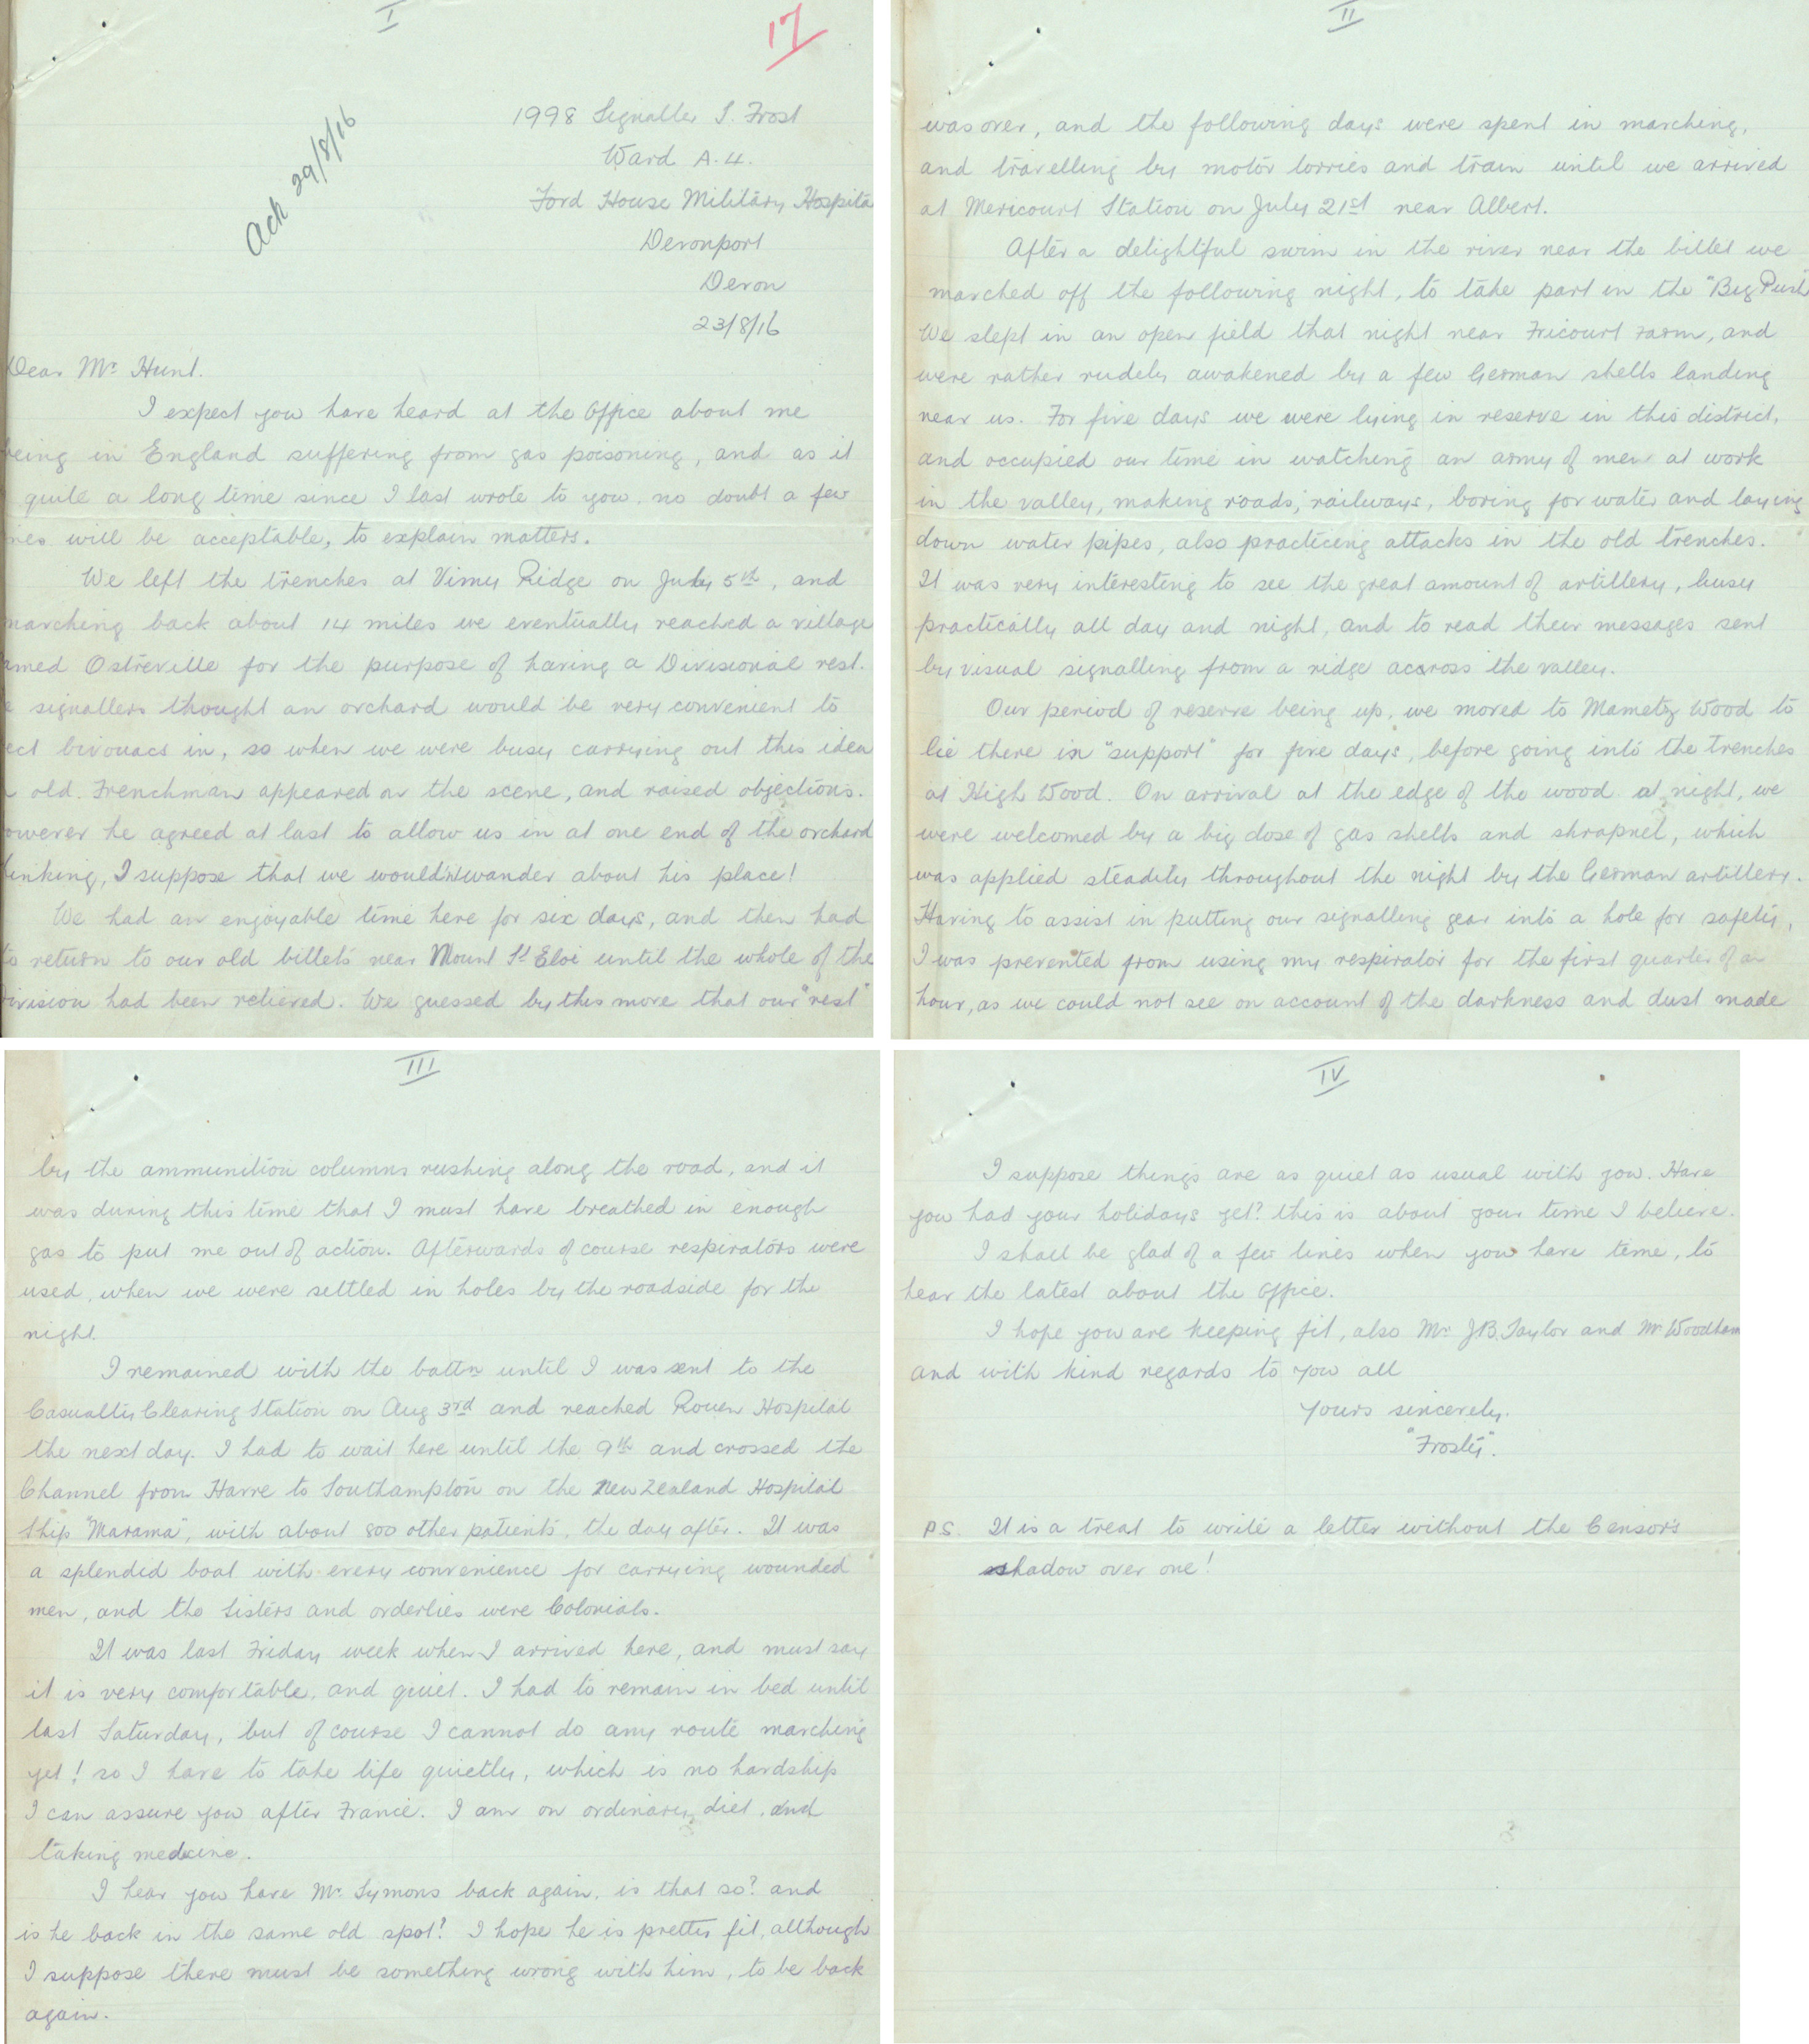 I
17
Ack 29/8/16
1998 Signaller S. Frost
Ward A.4.
Ford House Military Hospita
Devonport
Devon
23/8/16
Dear Mr Hunt.
I expect you have heard at the Office about me
being in England suffering from gas poisoning, and as it
quite a long time since I last wrote to you, no doubt a few
nes will be acceptable, to explain matters.
We left the trenches at Vimy Ridge on July 5th, and
marching back about 14 miles we eventually reached a village
amed Ostreville for the purpose of having a Divisional rest.
e signallers thought an orchard would be very convenient to
ect bivouacs in, so when we were busy carrying out this idea
old Frenchman appeared on the scene, and raised objections.
owever he agreed at last to allow us in at one end of the orchard
inking, I suppose that we wouldn't wander about his place!
We had an enjoyable time here for six days, and then had
to return to our old billets near Mount St Eloi until the whole of the
ivision had been relieved. We guessed by this move that our "rest"
II
was over, and the following days were spent in marching,
and travelling by motor lorries and train until we arrived
at Mericourt Station on July 21st near Albert.
After a delightful swim in the river near the billet we
marched off the following night, to take part in the "Big Push"
We slept in an open field that night near Fricourt Farm, and
were rather rudely awakened by a few German shells landing
near us. For five days we were lying in reserve in this district,
and occupied our time in watching an army of men at work
in the valley, making roads, railways, boring for water and laying
down water pipes, also practicing attacks in the old trenches.
It was very interesting to see the great amount of artillery, busy
practically all day and night, and to read their messages sent
by visual signalling from a ridge accross the valley.
Our period of reserve being up, we moved to Mametz Wood to
lie there in "support" for five days, before going into the trenches
at High Wood. On arrival at the edge of the wood at night, we
were welcomed by a big dose of gas shells and shrapnel, which
was applied steadily throughout the night by the German artillery.
Having to assist in putting our signalling gear into a hole for safety,
I was prevented from using my respirator for the first quarter of an
hour, as we could not see on account of the darkness and dust made
III
by the ammunition columns rushing along the road, and it
was during this time that I must have breathed in enough
gas to put me out of action. Afterwards of course respirators were
used, when we were settled in holes by the roadside for the
night.
I remained with the battn until I was sent to the
Casualty Clearing Station on Aug 3rd and reached Rouen Hospital
the next day. I had to wait here until the 9th and crossed the
Channel from Havre to Southampton on the New Zealand Hospital
Ship "Marama", with about 800 other patients, the day after. It was
a splendid boat with every convenience for carrying wounded
men, and the Sisters and orderlies were Colonials.
It was last Friday week when I arrived here, and must say
it is very comfortable, and quiet. I had to remain in bed until
last Saturday, but of course I cannot do any route marching
yet! so I have to take life quietly, which is no hardship
I can assure you after France. I am on ordinary diet, and
taking medecine.
I hear you have Mr Symons back again, is that so? and
is he back in the same old spot? I hope he is pretty fit, although
I suppose there must be something wrong with him, to be back
again.
IV
I suppose things are as quiet as usual with you. Have
you had your holidays yet? this is about your time I believe.
I shall be glad of a few lines when you have time, to
hear the latest about the Office.
I hope you are keeping fit, also Mr J.B. Taylor and Mr Woodham
and with kind regards to you all
Yours sincerely.
"Frosty".
P.S. It is a treat to write a letter without the Censor's
shadow over one!